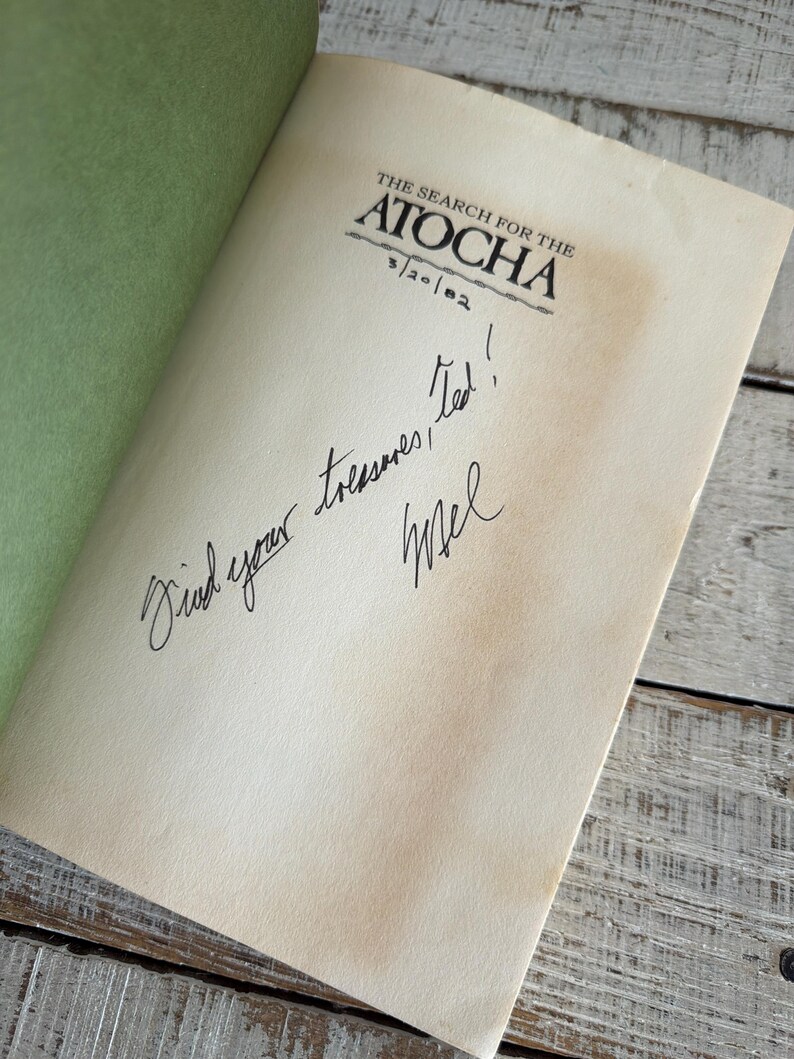 THE SEARCH FOR THE
ATOCHA
3/20/82
Find your treasures, Ted!
Mel